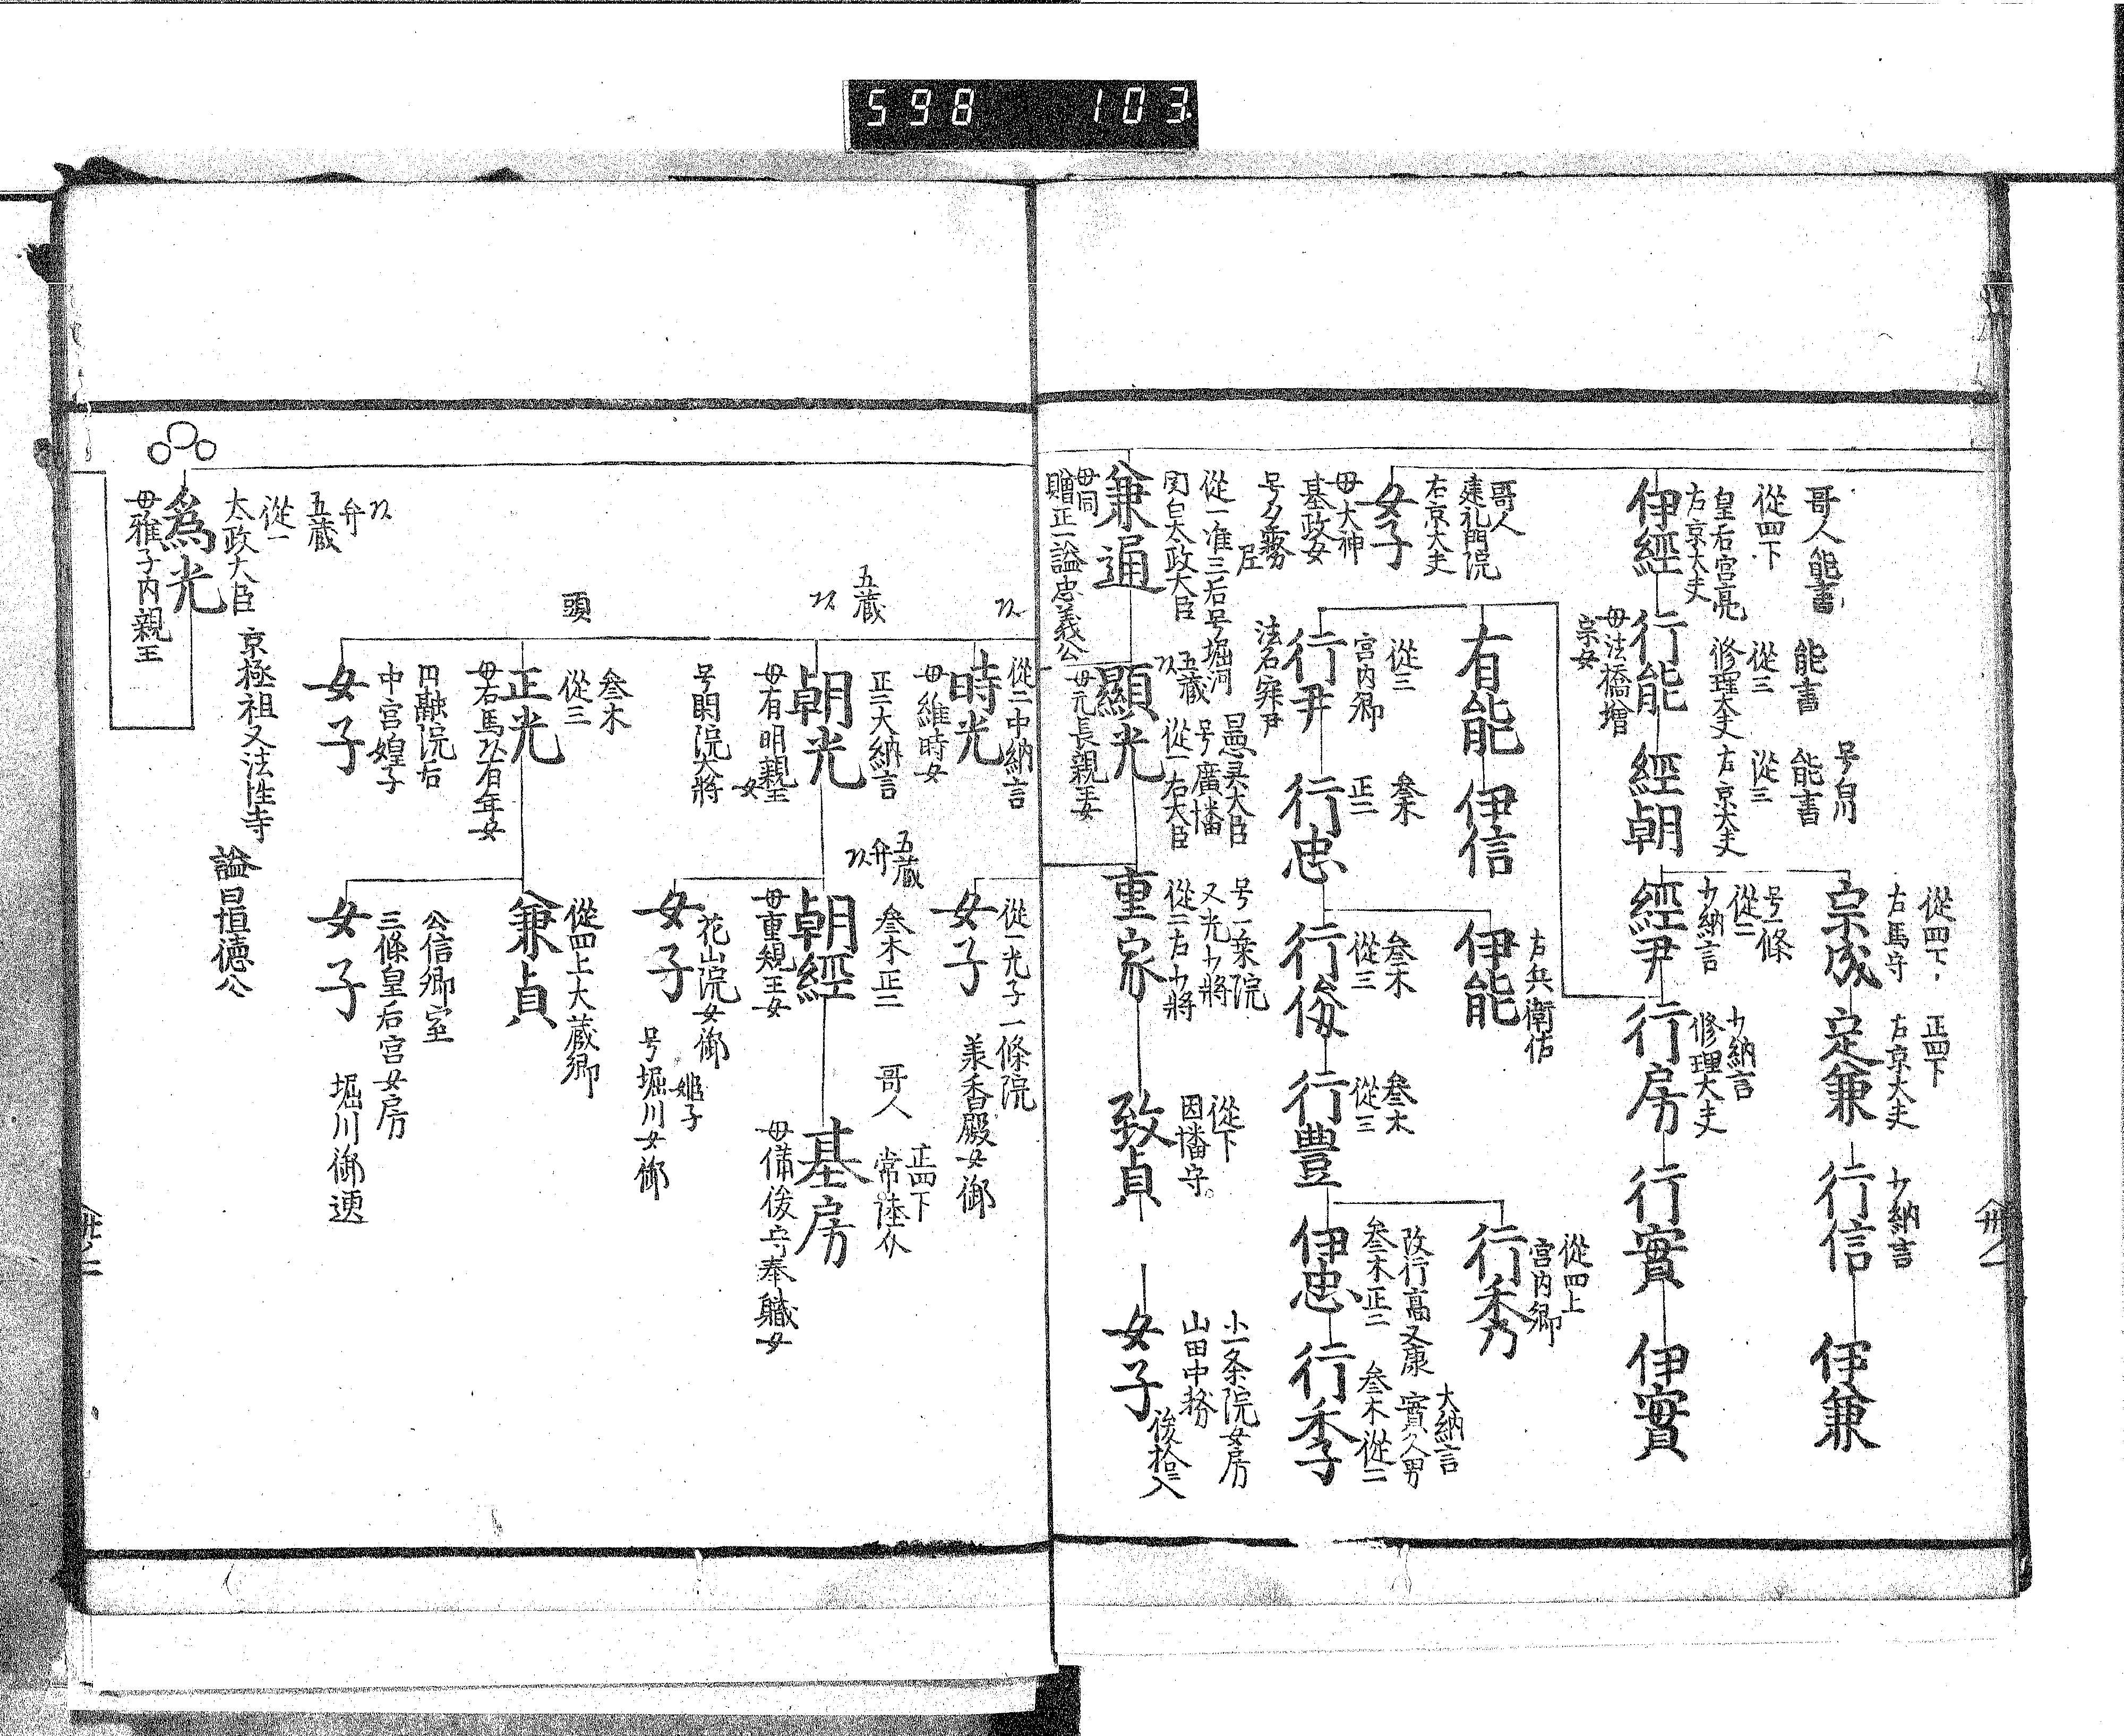 598 103
哥人 能書
從四下
皇后宮亮
右京大夫
伊經
能書
從三
修理大夫
行能
母法橋増
宗女
能書
從三
右京大夫
經朝
從四下
右馬守
宗成
正四下
右京大夫
定兼
少納言
行信
伊兼
号一條
從二
少納言
經尹
少納言
修理大夫
行房
行實
伊實
哥人
建礼門院
右京大夫
女子
母大神
基政女
号夕霧
有能
伊信
左兵衛佐
伊能
從四上
宮内卿
行秀
從三
宮内卿
行尹
法名寂尹
叅木
正二
行忠
叅木
從三
行俊
叅木
從三
行豊
改行高又康
叅木正二
伊忠
大納言
實〃人男
叅木從二
行季
從一准三后号堀河
関白太政大臣
兼通
母同
贈正一謚忠義公
五蔵
悪灵大臣
号廣播
從一右大臣
顯光
母元長親王女
号一乗院
又光少將
從二右少將
重家
從下
因播守
致貞
小一条院女房
山田中務
女子
後拾入
從二中納言
時光
母維時女
從一尤子一條院
美香殿女御
女子
五蔵
正三大納言
朝光
母有明親王
女
号閑院大將
五蔵
弁
叅木正二
朝經
母重親王女
哥人
正四下
常陸介
基房
母備後守奉職女
花山院女御
姫子
女子
号堀川女御
頭
叅木
從三
正光
母右馬以有年女
從四上大蔵卿
兼貞
円融院后
中宮媓子
女子
公信卿室
三條皇后宮女房
女子
堀川御匣
弁
五蔵
從一
太政大臣
爲光
母雅子内親王
京極祖又法性寺
謚曰恒徳公